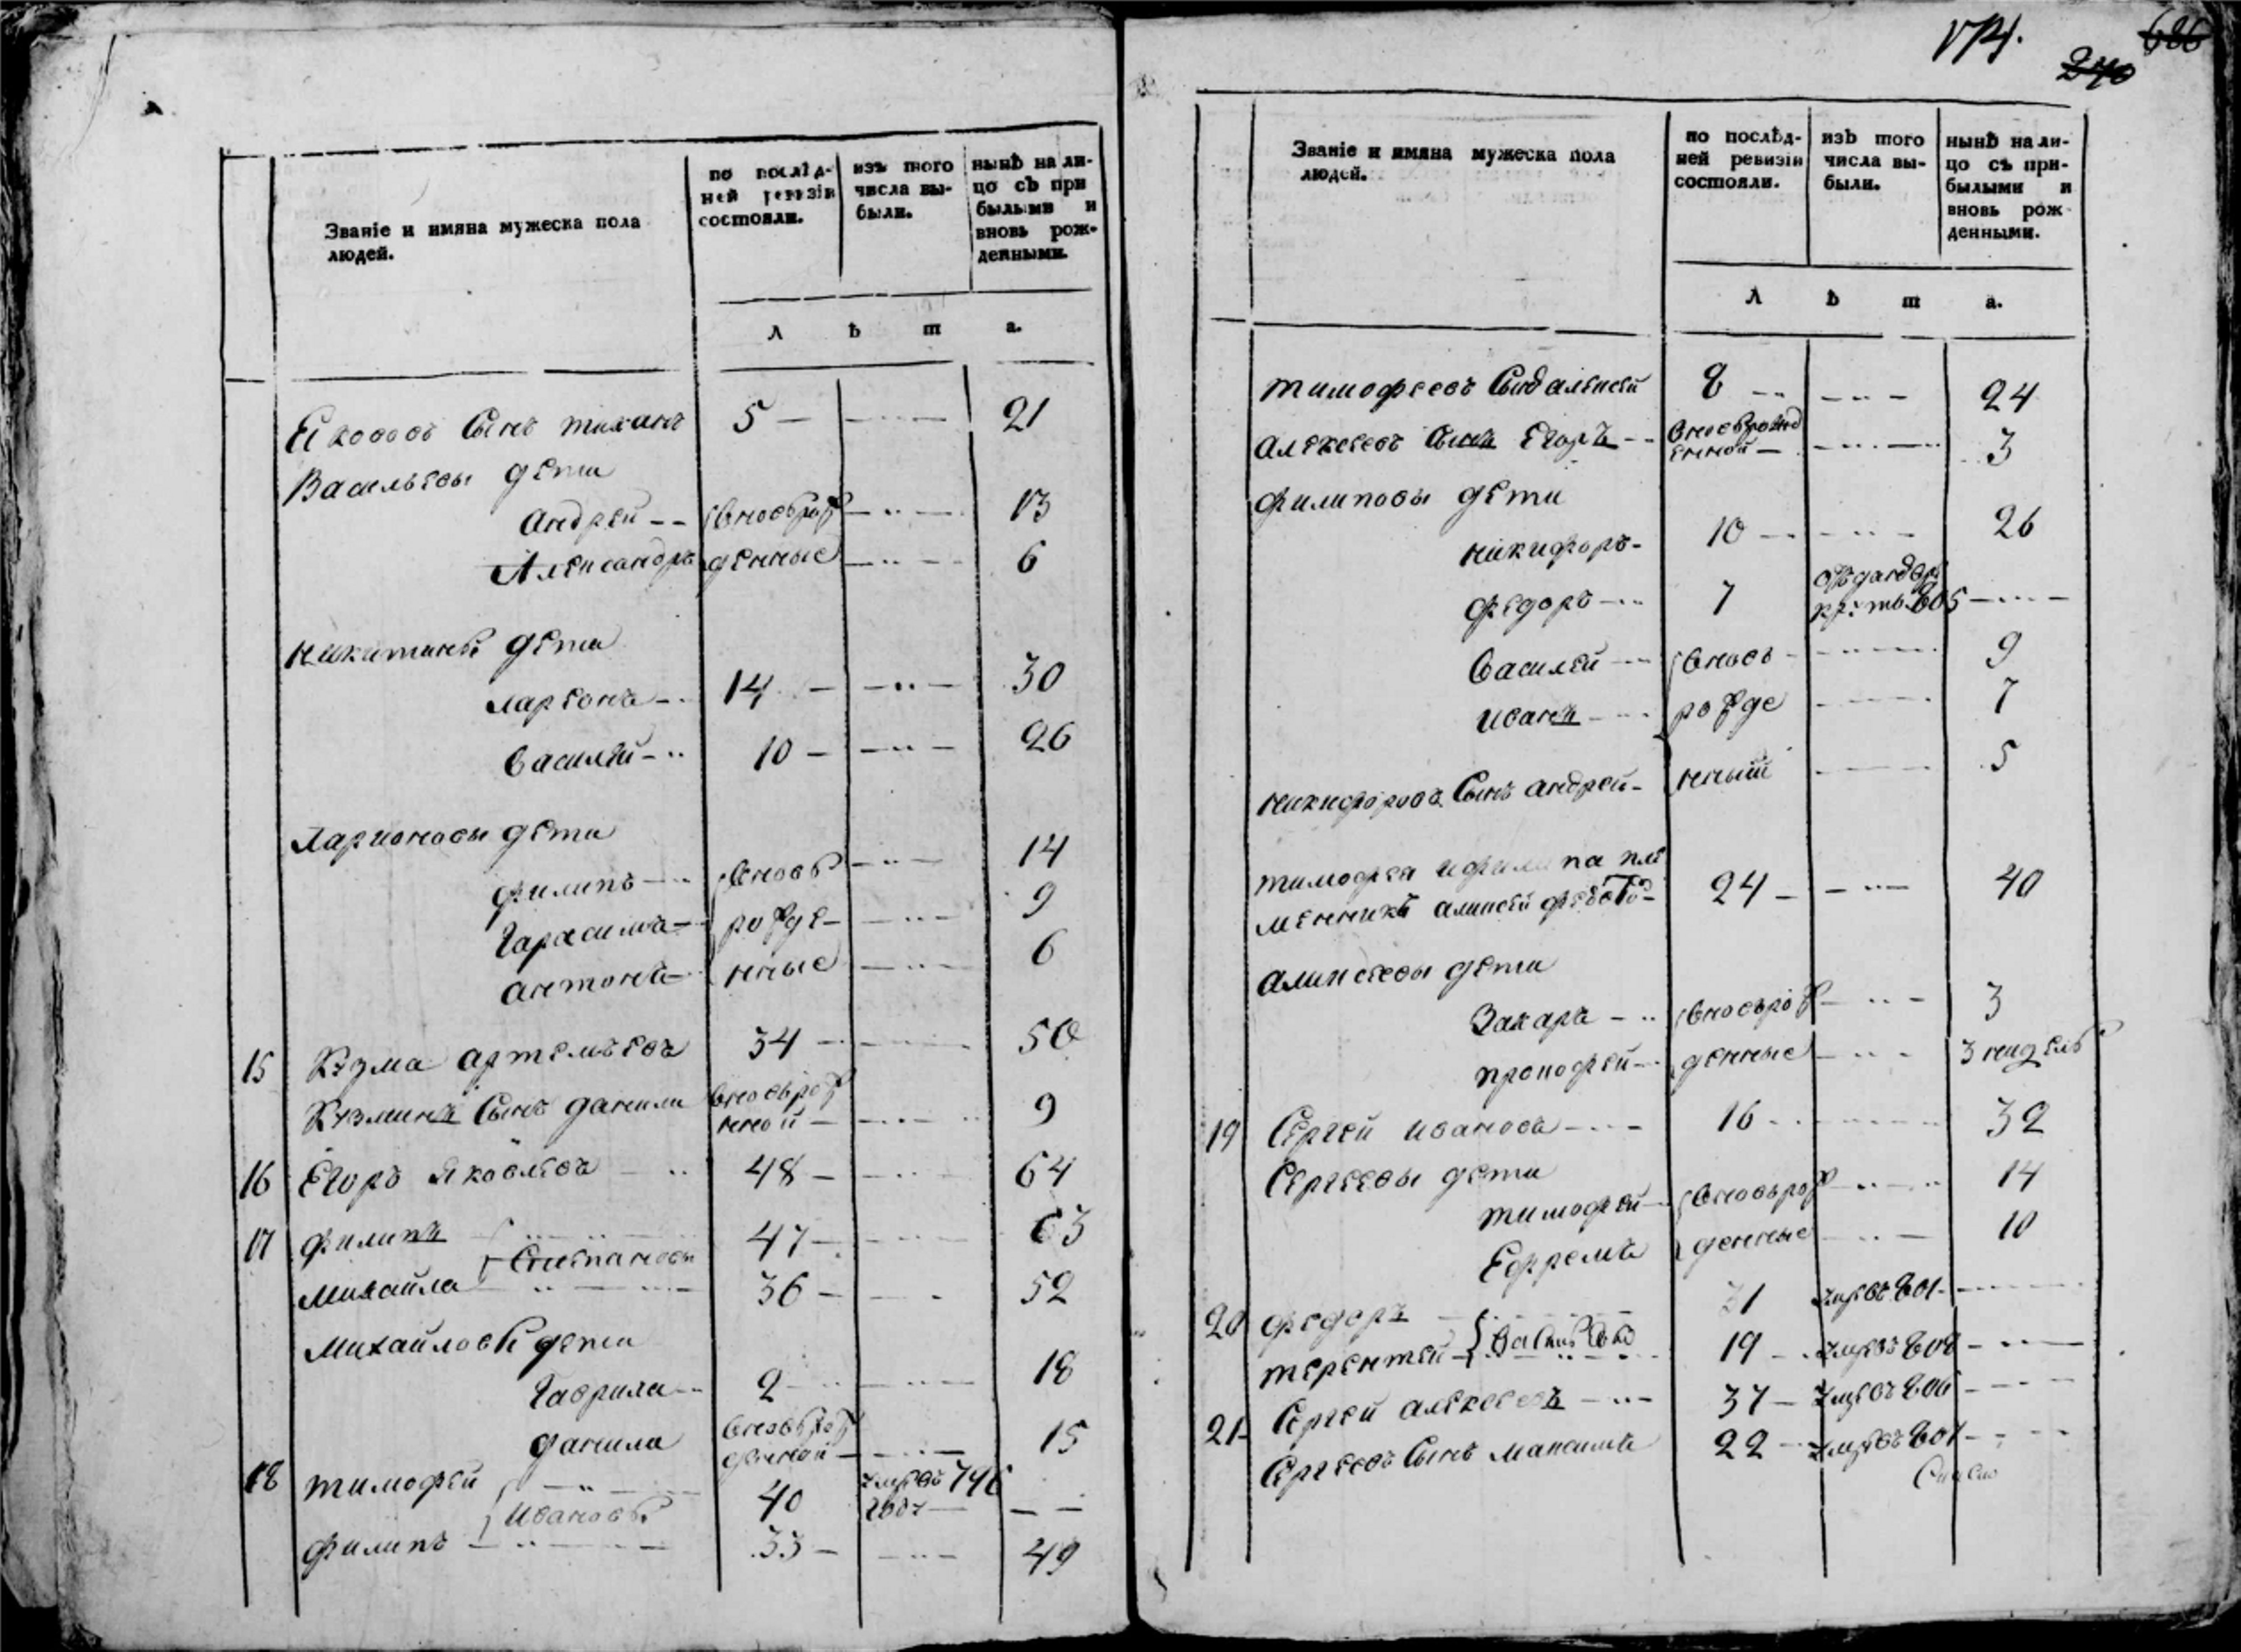 Званіе и имяна мужеска пола
людей.
по послѣд-
ней ревизіи
состояли.
изъ того
числа вы-
были.
нынѣ на ли-
цо съ при
былыми и
вновь рож-
денными.
л ѣ т а.
сынъ тиханъ 5 21
Васильевы дети
андрей вновьрож 13
Александръ денные 6
никитины дети
ларіонъ 14 30
василей 10 26
Ларионовы дети
филипъ вновь 14
Гарасимъ рожде 9
антонъ нные 6
15 Кузма артемьевъ 34 50
Кузминъ сынъ данила вновьрож
нной 9
16 Егоръ яковлевъ 48 64
17 филипъ 47 63
Степановы
михайла 36 52
михайловы дети
Гаврила 2 18
данила вновьрож
денной 15
18 тимофей 40 умревъ 796
Ивановы году
филипъ 33 49
174.
686
240
Званіе и имяна мужеска пола
людей.
по послѣд-
ней ревизіи
состояли.
изъ того
числа вы-
были.
нынѣ на ли-
цо съ при-
былыми и
вновь рож
денными.
л ѣ т а.
тимофеевъ сынъ алексей 8 24
алексеевъ сынъ Егоръ вновьрожд
енной 3
филиповы дети
никифоръ 10 26
федоръ 7 отданъ в
805
василей вновь 9
иванъ рожде 7
никифоровъ сынъ андрей нный 5
тимофея и филипа пле
менникъ алексей 24 40
алексеевы дети
Захаръ вновьрож 3
прокофей денные 3 недель
19 Сергей ивановъ 16 32
Сергеевы дети
тимофей вновьрож 14
Ефремъ денные 10
20 федоръ 31 умревъ 801
терентей 19 умревъ 808
21 Сергей алексеевъ 37 умревъ 806
Сергеевъ сынъ максимъ 22 умревъ 801